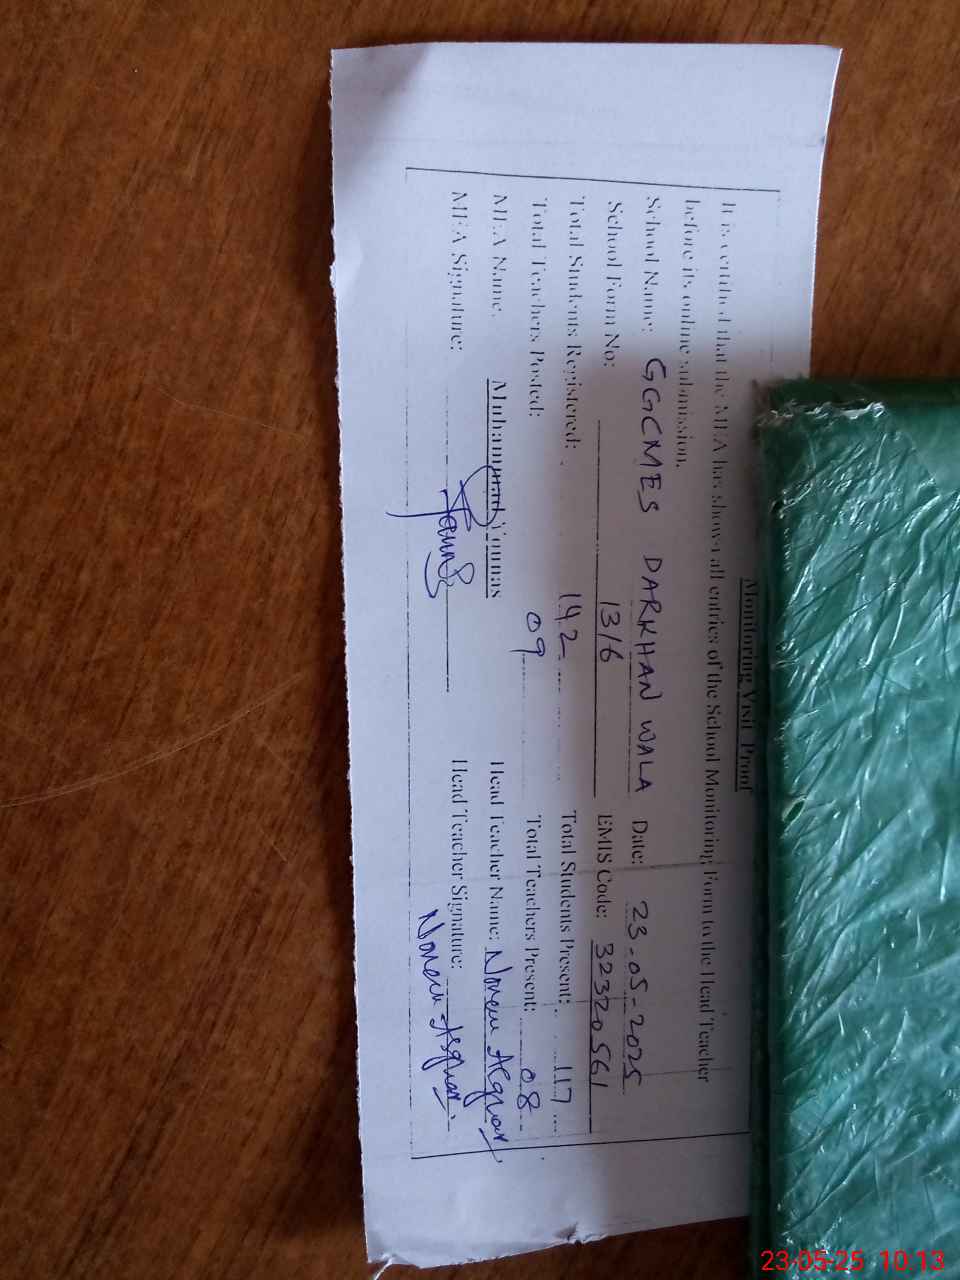 Monitoring Visit Proof
It is certified that the MEA has shown all entries of the School Monitoring Form to the Head Teacher
before its online submission.
School Name: GGCMES DARKHAN WALA Date: 23-05-2025
School Form No: 1316 EMIS Code: 32320561
Total Students Registered: 142 Total Students Present: 117
Total Teachers Posted: 09 Total Teachers Present: 08
MEA Name: Muhammad Younas Head Teacher Name: Noreen Asghar
MEA Signature: Younas Head Teacher Signature: Noreen Asghar
23-05-25 10.13